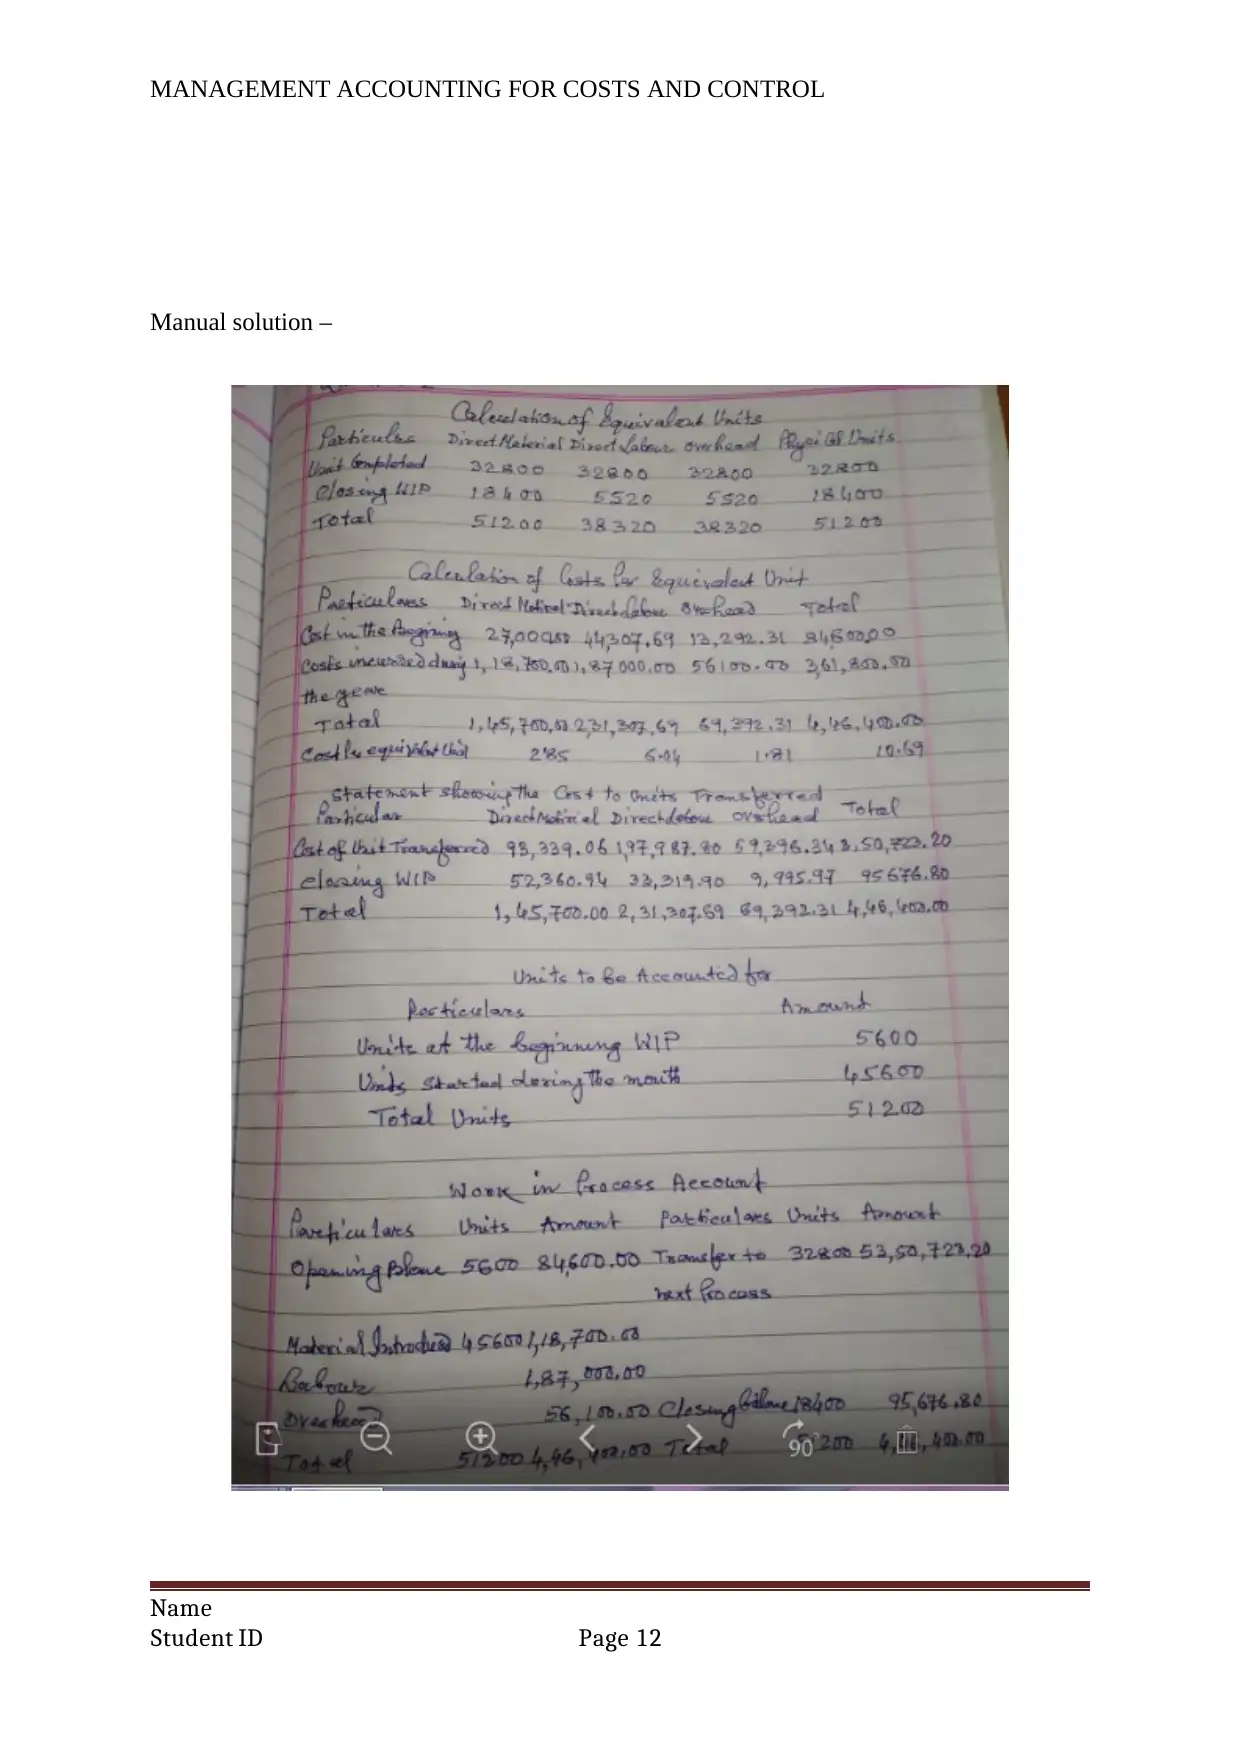 MANAGEMENT ACCOUNTING FOR COSTS AND CONTROL
Manual solution –
Calculation of Equivalent Units
Particulars Direct Material Direct Labour overhead Physical Units
Unit Completed 32800 32800 32800 32800
Closing WIP 18400 5520 5520 18400
Total 51200 38320 38320 51200
Calculation of Costs Per Equivalent Unit
Particulars Direct Material Direct Labour overhead Total
Cost in the Beginning 44,307.69 13,292.31 84,600.00
Costs incurred during 1,18,700.00 1,87000.00 56100.00 3,61,800.00
the year
Total 1,45,700.00 2,31,307.69 69,392.31 4,46,400.00
Cost Per equivalent Unit 2.85 6.04 1.81 10.69
Statement showing the Cost to Units Transferred
Particular Direct Material Direct Labour overhead Total
Cost of Unit Transferred 93,339.06 1,97,987.80 59,396.34 3,50,723.20
Closing WIP 52,360.94 33,319.90 9,995.97 95676.80
Total 1,45,700.00 2,31,307.69 69,392.31 4,46,400.00
Units to be Accounted for
Particulars Amount
Units at the beginning WIP 5600
Units Started during the month 45600
Total Units 51200
Work in Process Account
Particulars Units Amount Particulars Units Amount
Opening 5600 84,600.00 Transfer to 32800 53,50,723.20
next Process
Material Introduced 45600 1,18,700.00
Labour 1,87,000.00
Overhead 56,100.00 Closing Balance 18400 95,676.80
Total 51200 4,46,400.00 Total 51200
90
Name
Student ID Page 12